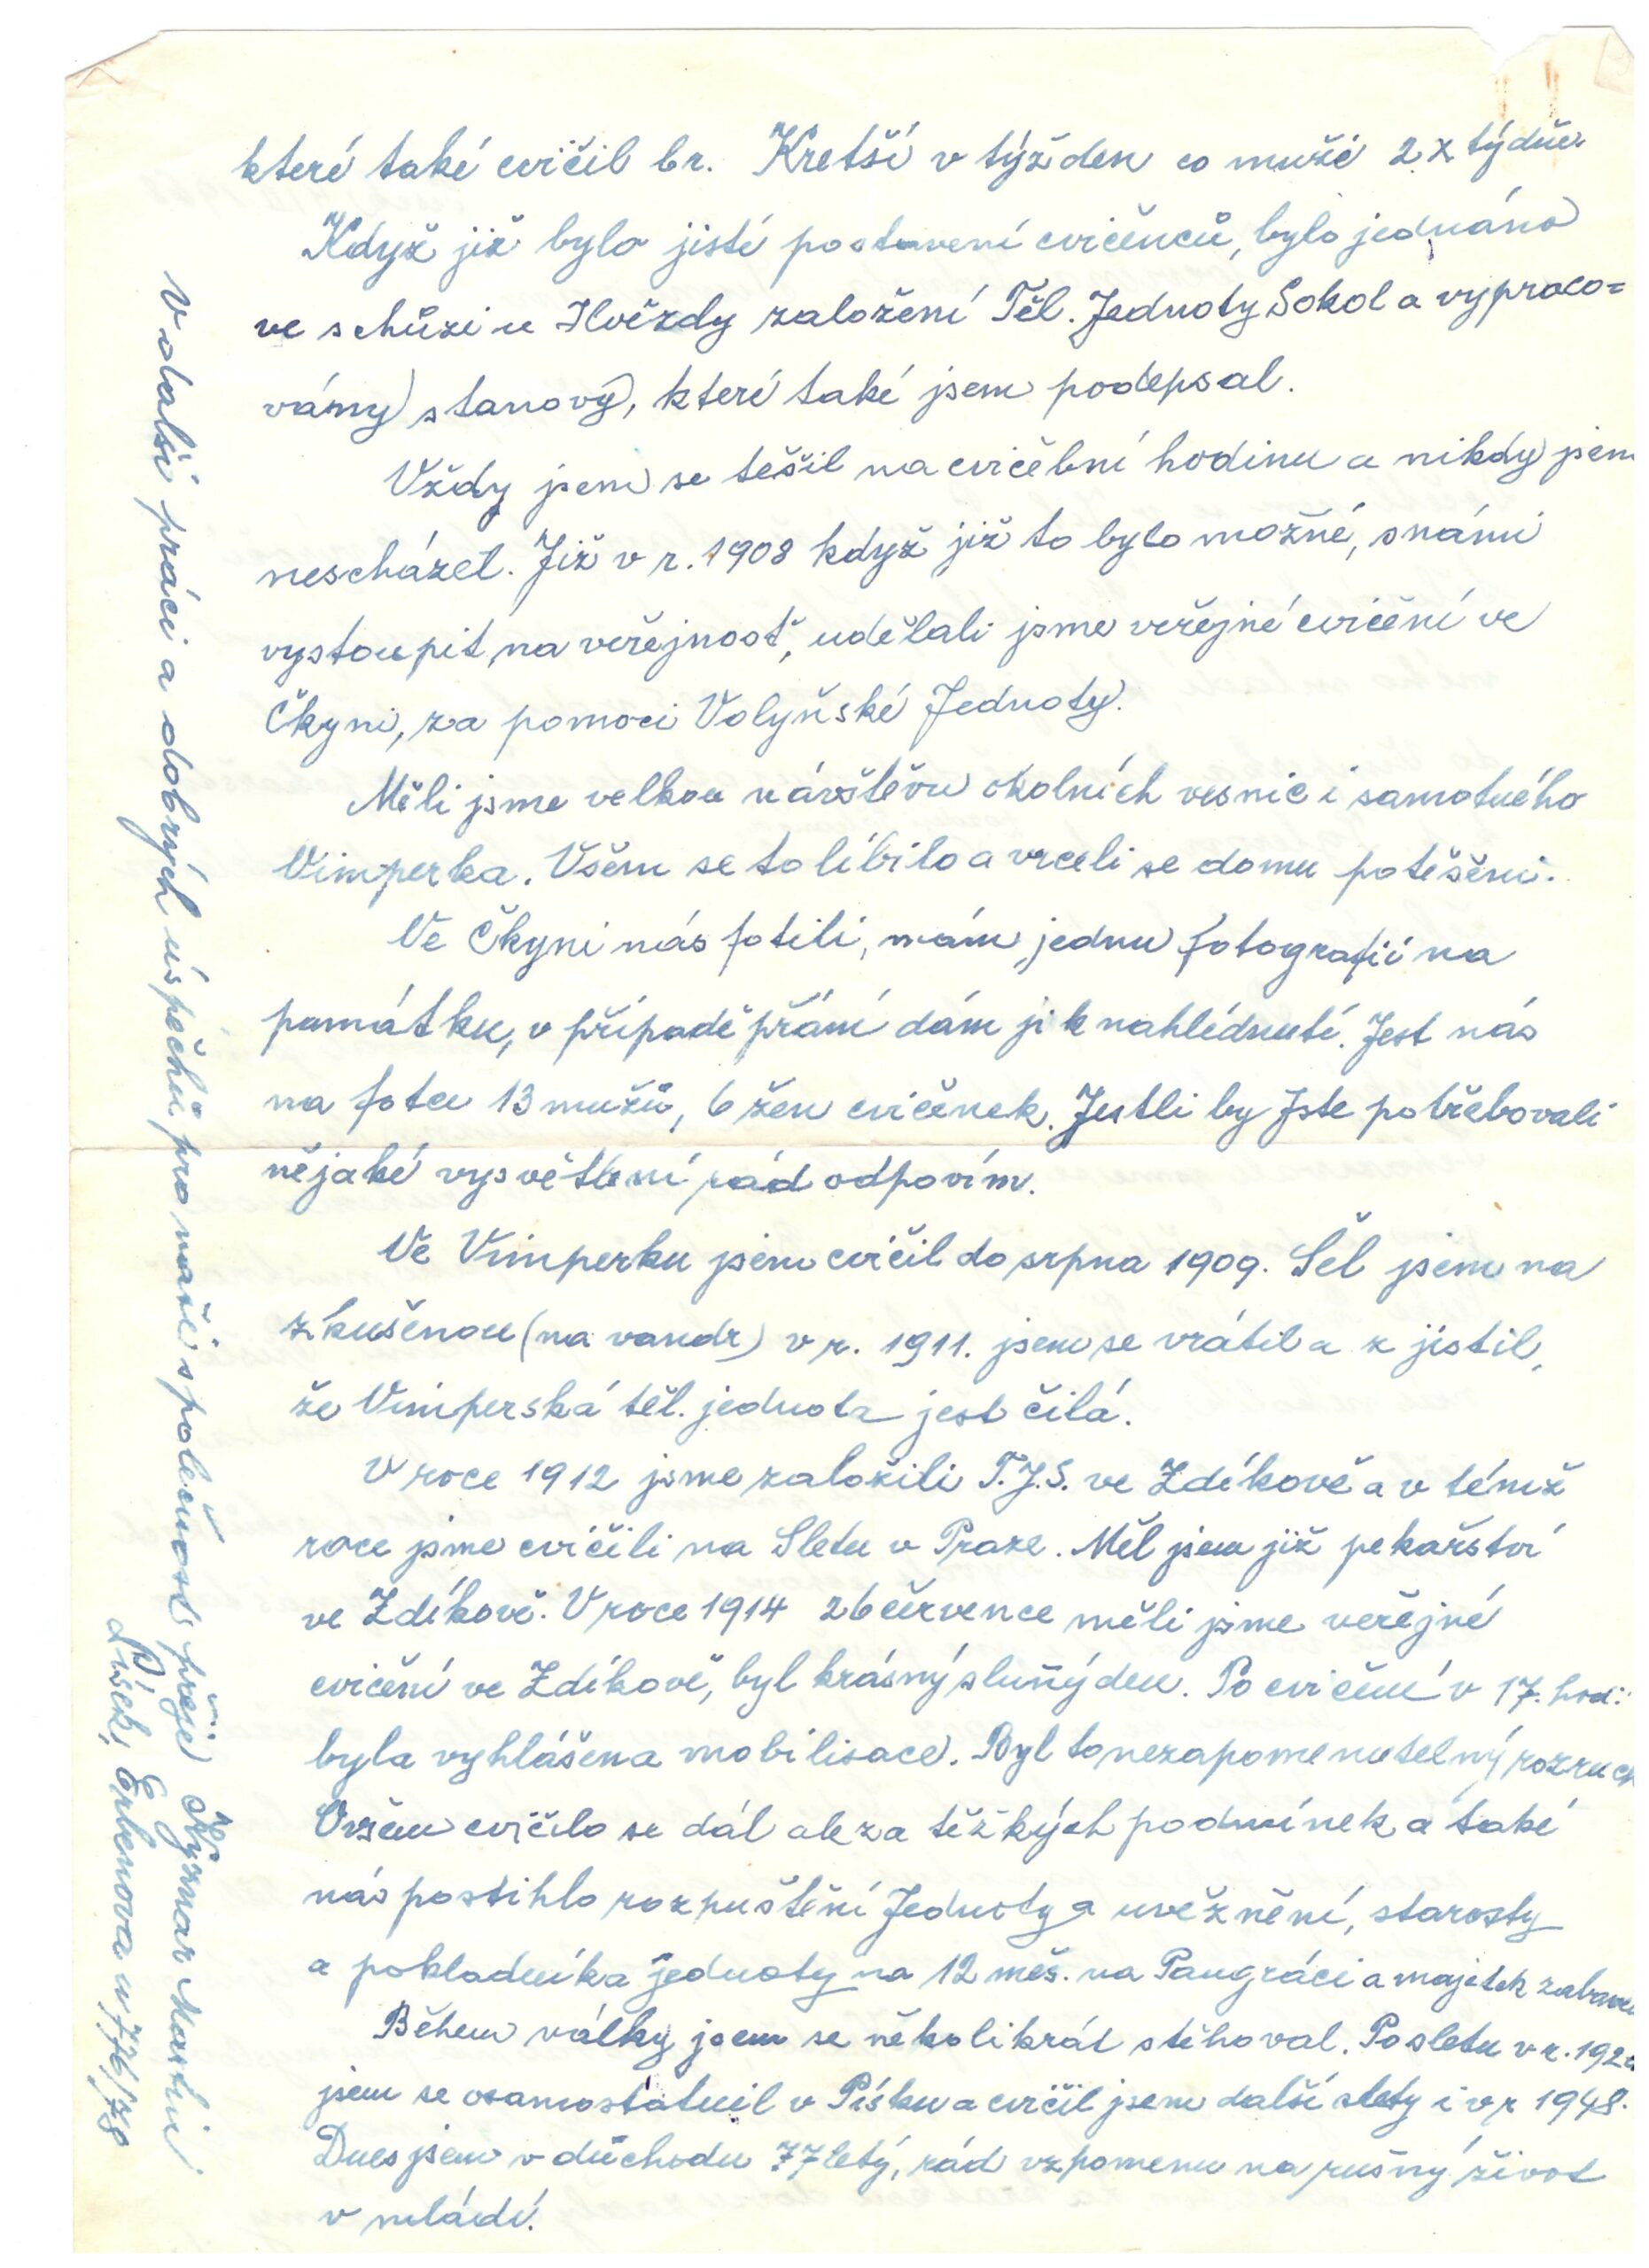 které také cvičil br. Kretší v týž den co muži 2x týdně.
Když již bylo jisté postavení cvičenců, bylo jednáno
ve schůzi u Hvězdy založení Těl. Jednoty Sokol a vypraco=
vány stanovy, které také jsem podepsal.
Vždy jsem se těšil na cvičební hodinu a nikdy jsem
nescházel. Již v r. 1908 když již to bylo možné, s námi
vystoupit na veřejnosť, udělali jsme veřejné cvičení ve
Čkyni, za pomoci Volyňské Jednoty.
Měli jsme velkou návštěvu okolních vesnic i samotného
Vimperka. Všem se to líbilo a vrceli se domu potěšeni.
Ve Čkyni nás fotili, mám jednu fotografii na
památku, v případě přání dám ji k nahlédnutí. Jest nás
na fotce 13 mužů, 6 žen cvičenek. Jestli by Jste potřebovali
nějaké vysvětlení rád odpovím.
Ve Vimperku jsem cvičil do srpna 1909. Šel jsem na
zkušenou (na vandr) v r. 1911. jsem se vrátil a zjistil,
že Vimperská těl. jednota jest čilá.
V roce 1912 jsme založili T.J.S. ve Zdíkově a v témž
roce jsme cvičili na Sletu v Praze. Měl jsem již pekařství
ve Zdíkově. V roce 1914 26 července měli jsme veřejné
cvičení ve Zdíkově, byl krásný sluný den. Po cvičení v 17. hod.
byla vyhlášena mobilisace. Byl to nezapomenutelný rozruch
Ovšem cvičilo se dál ale za těžkých podmínek a také
nás postihlo rozpuštění Jednoty a uvěznění, starosty
a pokladníka jednoty na 12 měs. na Pangráci a majetek
Během války jsem se několikrát stěhoval. Po sletu v r.
jsem se osamostatnil v Písku a cvičil jsem další slety i v r 1948.
Dnes jsem v důchodu 77 letý, rád vzpomenu na rušný život
v mládí.
V další práci a dobrých úspěchů pro naši společnost přeje Kysnar Martin
Písek, Erbenova u 776/78